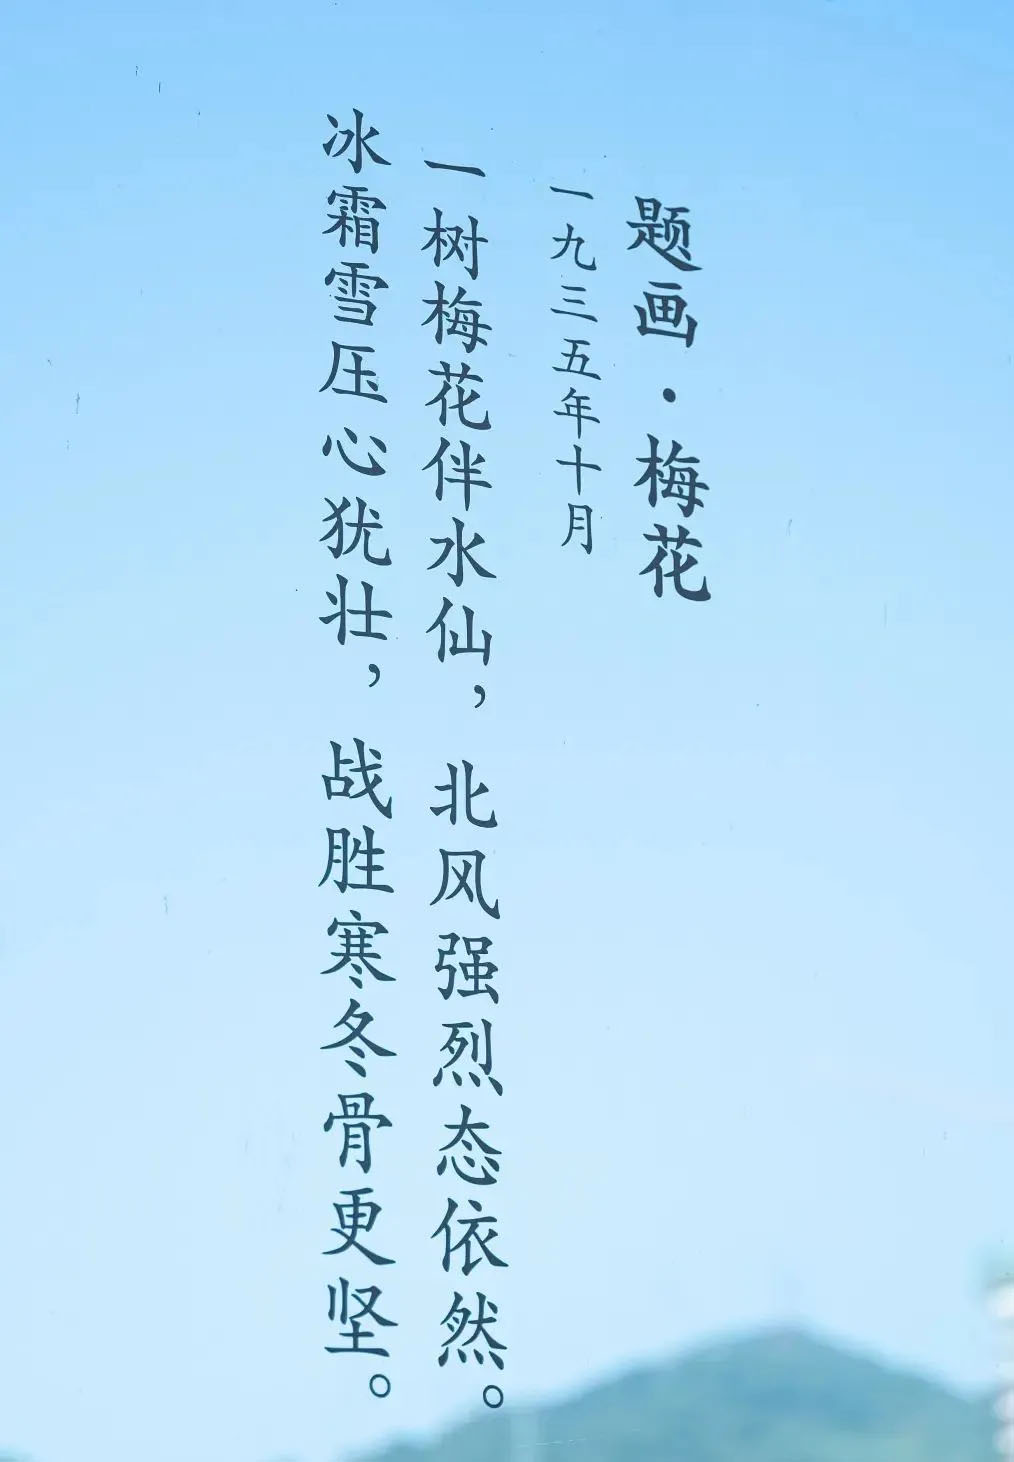 题画·梅花
一九三五年十月
一树梅花伴水仙，北风强烈态依然。
冰霜雪压心犹壮，战胜寒冬骨更坚。